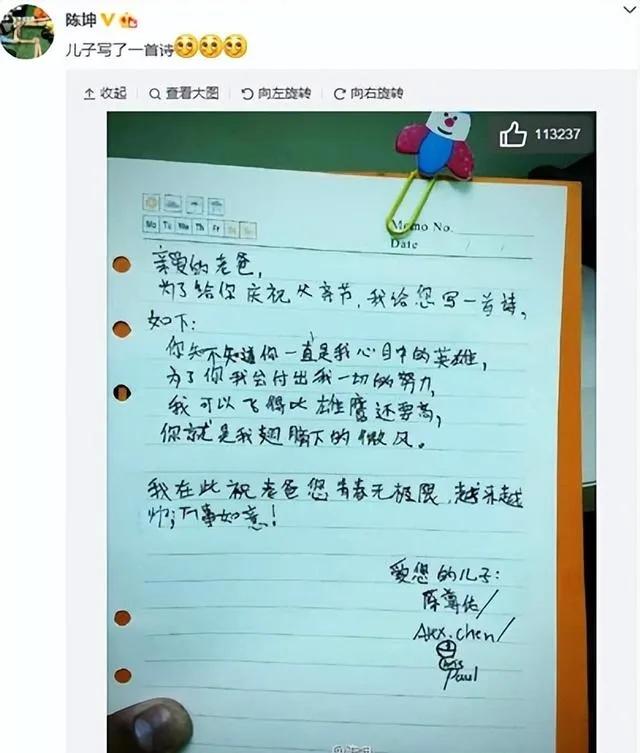 陈坤
儿子写了一首诗
收起 查看大图 向左旋转 向右旋转
113237
Mo Tu We Th Fr Sa Su
Memo No.
Date / /
亲爱的老爸,
为了给你庆祝父亲节,我给您写一首诗,
如下:
你知不知道你一直是我心目中的英雄,
为了你我会付出我一切的努力,
我可以飞得比雄鹰还要高,
你就是我翅膀下的微风。
我在此祝老爸您青春无极限,越来越
帅,万事如意!
爱您的儿子:
陈尊佑/
Alex.chen/
Paul